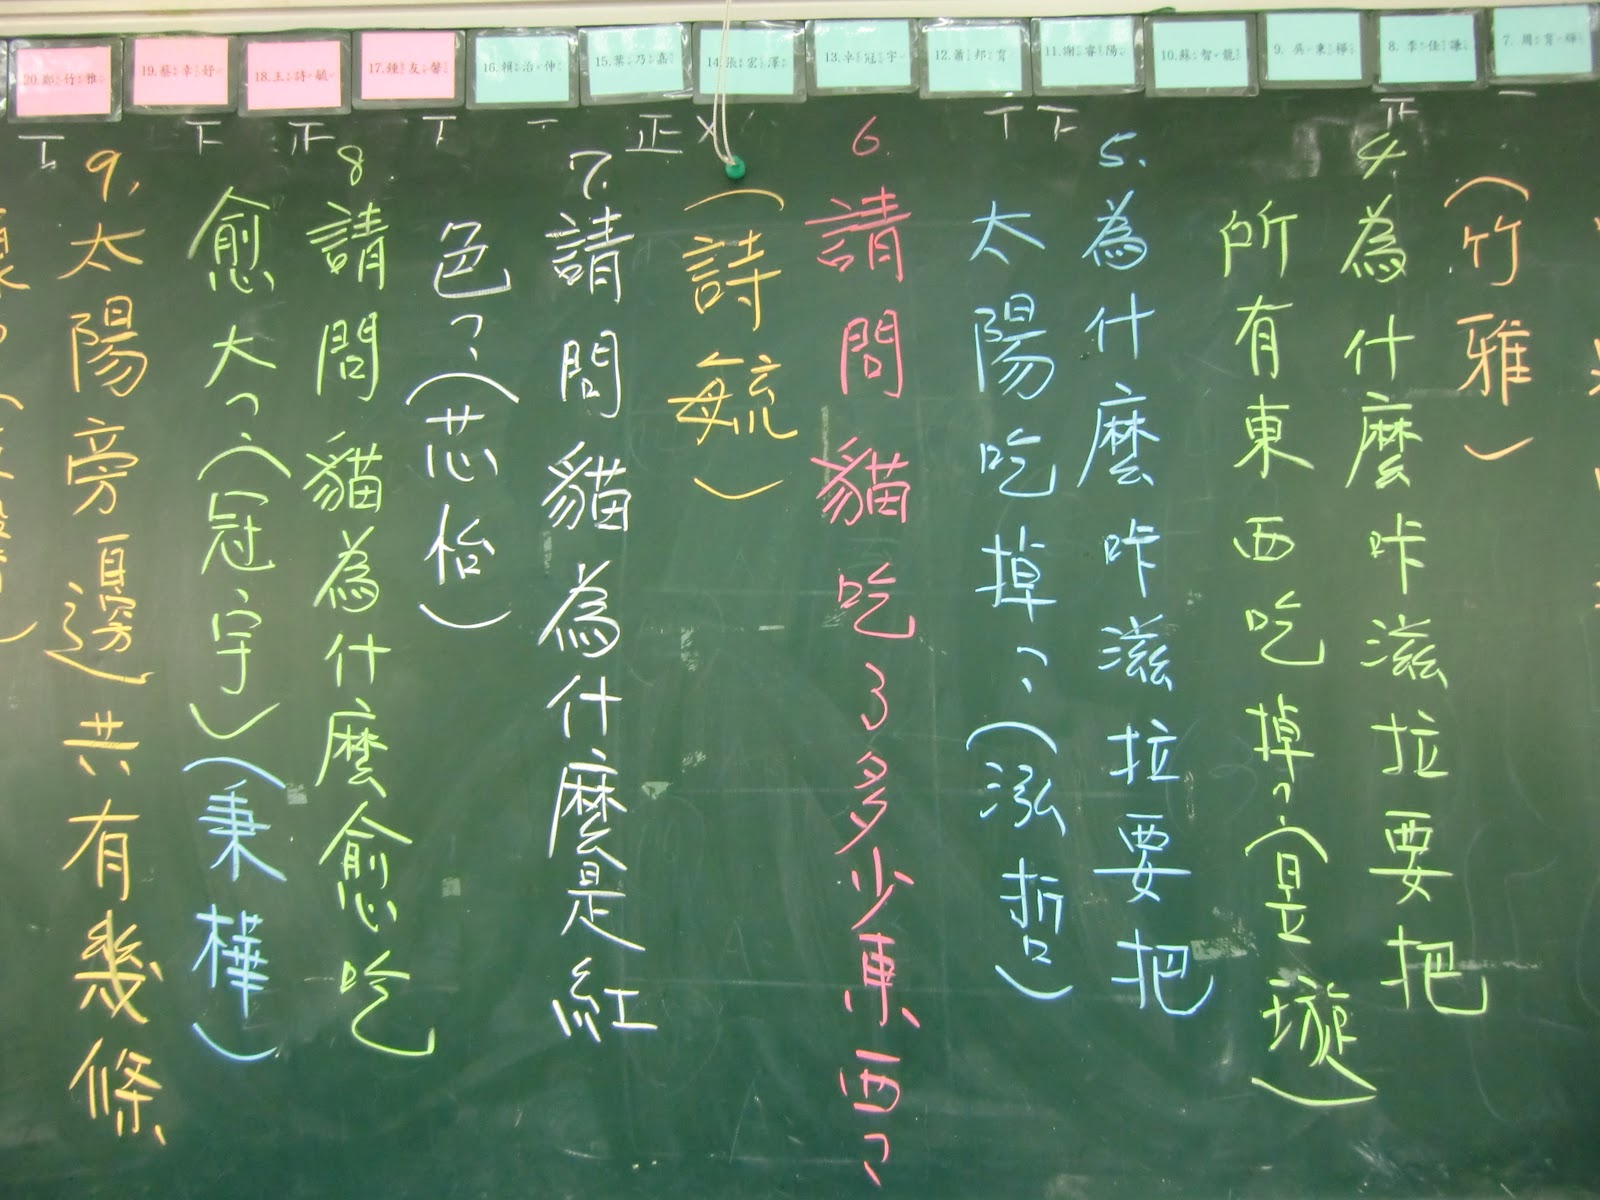 20.鄭竹雅
19.蔡幸妤
18.王詩毓
17.鍾友馨
16.賴冶伸
15.葉乃嘉
14.張宏澤
13.卓冠宇
12.蕭邦育
11.謝睿陽
10.蘇智龍
9.吳秉樺
8.李佳謙
7.周育輝
(竹雅)
4.為什麼咔滋拉要把
所有東西吃掉?(宜璇)
5.為什麼咔滋拉要把
太陽吃掉?(泓哲)
6.請問貓吃了多少東西?
(詩毓)
7.請問貓為什麼是紅
色?(芯怡)
8.請問貓為什麼愈吃
愈大?(冠宇)(秉樺)
9.太陽旁邊共有幾條